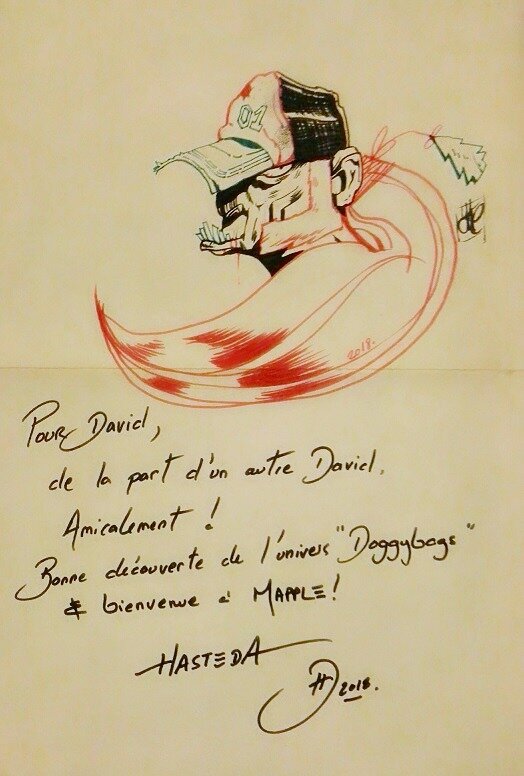 01
2018.
Pour David,
de la part d'un autre David.
Amicalement !
Bonne découverte de l'univers "Doggybags"
& bienvenue à MAPPLE !
HASTEDA
2018.